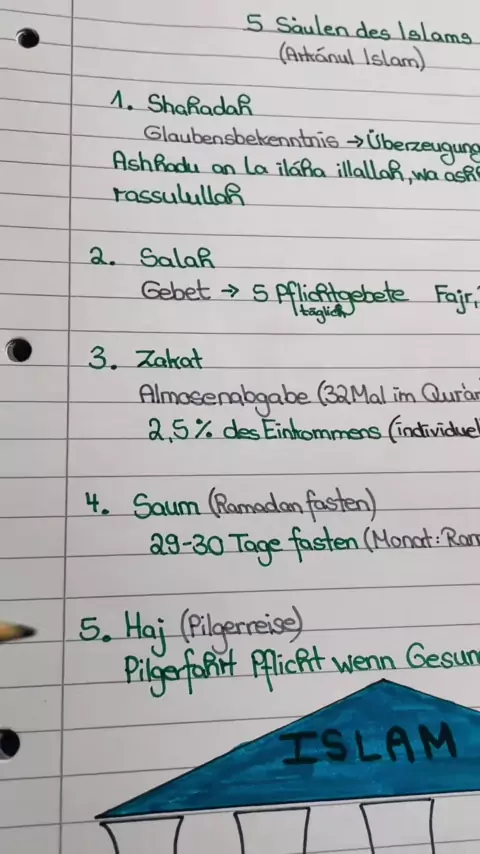 5 Säulen des Islams
(Arkánul Islam)
1. Shahadah
Glaubensbekenntnis → Überzeugung
Ashhadu an la iláha illallah, wa ash
rassulullah
2. Salah
Gebet → 5 Pflichtgebete Fajr,
täglich
3. Zakat
Almosenabgabe (32 Mal im Qur'an
2,5% des Einkommens (individuel
4. Saum (Ramadan fasten)
29-30 Tage fasten (Monat: Ram
5. Haj (Pilgerreise)
Pilgerfahrt Pflicht wenn Gesun
ISLAM